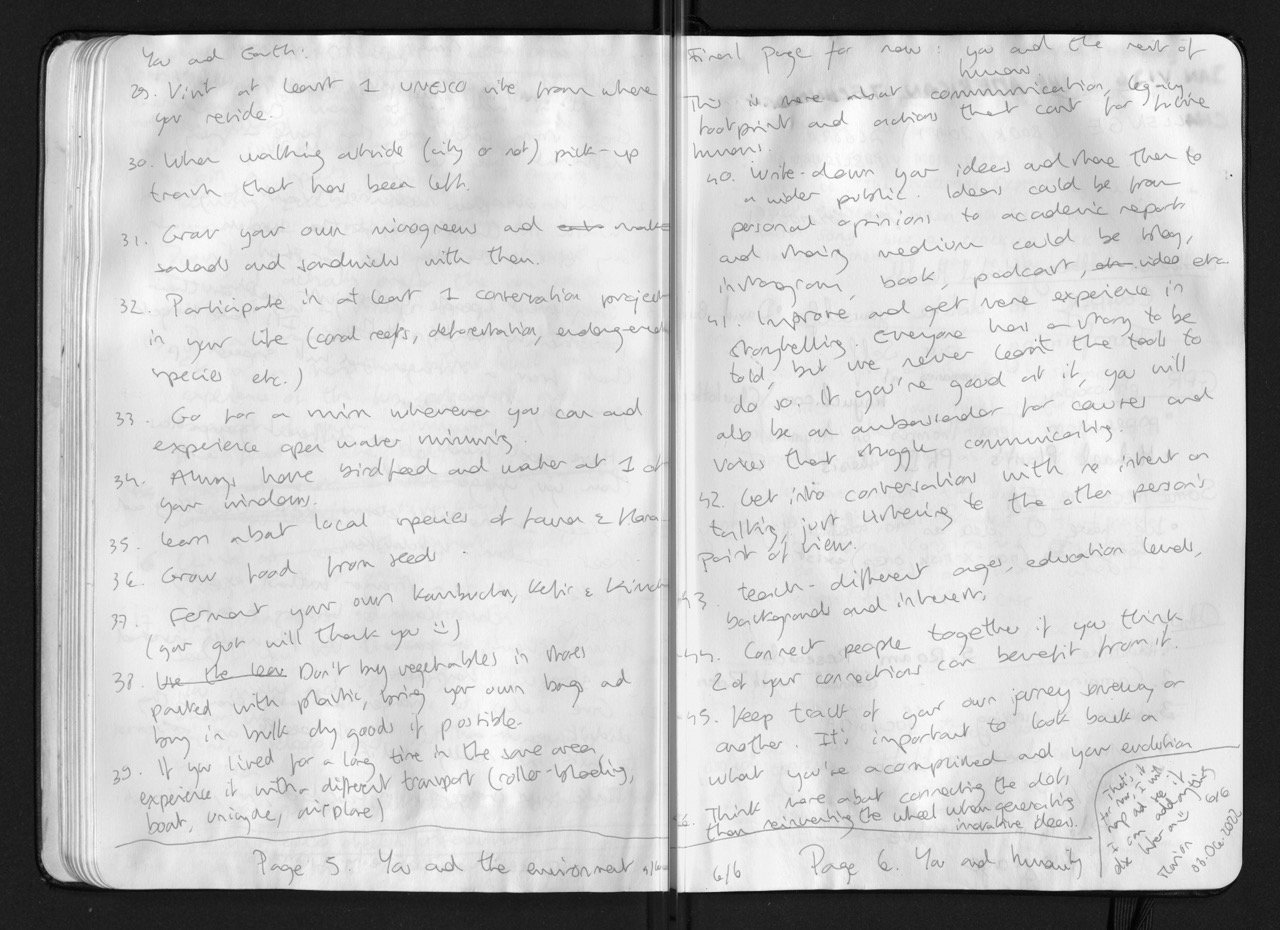 You and Earth.
29. Visit at least 1 UNESCO site from where
you reside.
30. When walking outside (city or not) pick-up
trash that has been left.
31. Grow your own microgreens and make
salads and sandwich with them.
32. Participate in at least 1 conservation project
in your life (coral reefs, deforestation, endangered
species etc.)
33. Go for a swim wherever you can and
experience open water swimming.
34. Always have birdfeed and water at 1 of
your windows.
35. Learn about local species of fauna & flora.
36. Grow food from seeds.
37. Ferment your own Kombucha, Kefir & Kimchi
(your gut will thank you)
38. Use the lea Don't buy vegetables in stores
packed with plastic, bring your own bags and
buy in bulk dry goods if possible.
39. If you lived for a long time in the same area,
experience it with a different transport (roller-blading,
boat, unicycle, airplane)
Page 5. You and the environment 5/6
Final page for now: you and the rest of
humans.
This is more about communication, legacy,
footprint and actions that count for future
humans.
40. Write-down your ideas and share them to
a wider public. Ideas could be from
personal opinions to academic reports
and sharing medium could be blog,
instagram, book, podcast, video etc.
41. Improve and get more experience in
storytelling. Everyone has a story to be
told, but we never learnt the tools to
do so. If you're good at it, you will
also be an ambassador for causes and
voices that struggle communicating.
42. Get into conversations with no intent on
talking, just listening to the other person's
point of view.
43. teach - different ages, education levels,
backgrounds and interests.
44. Connect people together if you think
2 of your connections can benefit from it.
45. Keep track of your own journey someway or
another. It's important to look back on
what you're accomplished and your evolution
46. Think more about connecting the dots
than reinventing the wheel when generating
innovative ideas.
6/6 Page 6. You and humanity
That's it
for now, I will
nap and see if
I can add anything
else later on
6/6
Marion
03.06.2022